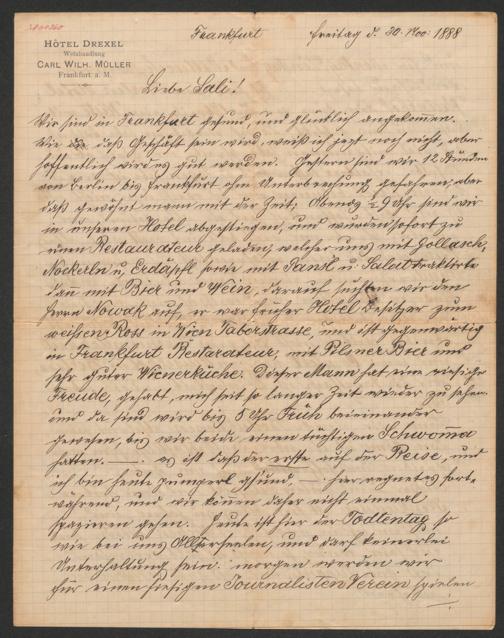 HÔTEL DREXEL
Weinhandlung
CARL WILH. MÜLLER
Frankfurt a. M.
Frankfurt Freitag d. 30. Nov. 1888
Liebe Sali!
Wir sind in Frankfurt gesund, und glücklich angekommen.
Wie daß Geschäft sein wird, weiß ich jezt noch nicht, aber
hoffentlich wird es gut werden. Gestern sind wir 12 Stunden
von Berlin bis Frankfurt ohne Unterbrechung gefahren, aber
daß gewöhnt mann mit der Zeit; Abends ½ 9 Uhr sind wir
in unseren Hotel abgestiegen, und wurden sofort zu
einen Restaurateur geladen, welcher uns mit Gollasch,
Nockerln u, Erdäpfl sowie mit Hansl u. Salat traktirte
dan mit Bier und Wein, darauf suchten wir den
Herrn Nowak auf, er war früher Hotel Besitzer zum
weissen Ross in Wien Taborstrasse, und ist gegenwärtig
in Frankfurt Restarateur, mit Pilsner Bier und
sehr guter Wienerküche. Dieser Mann hat eine riesige
Freude, gehabt, mich seit so langer Zeit wieder zu sehen.
und da sind wir bis 5 Uhr Früh beieinander
gewesen, bis wir beide einen tüchtigen Schwomma
hatten. — . es ist daß der erste auf der Reise, und
ich bin heute pumperl gsund. — . hier regnet es fort-
während, und wir könen daher nicht einmal
spazieren gehen. Heute ist hier der Todtentag so
wie bei uns Allerseelen, und darf keinerlei
Unterhaltung sein. morgen werden wir
für einen hiesigen Journalisten Verein spielen